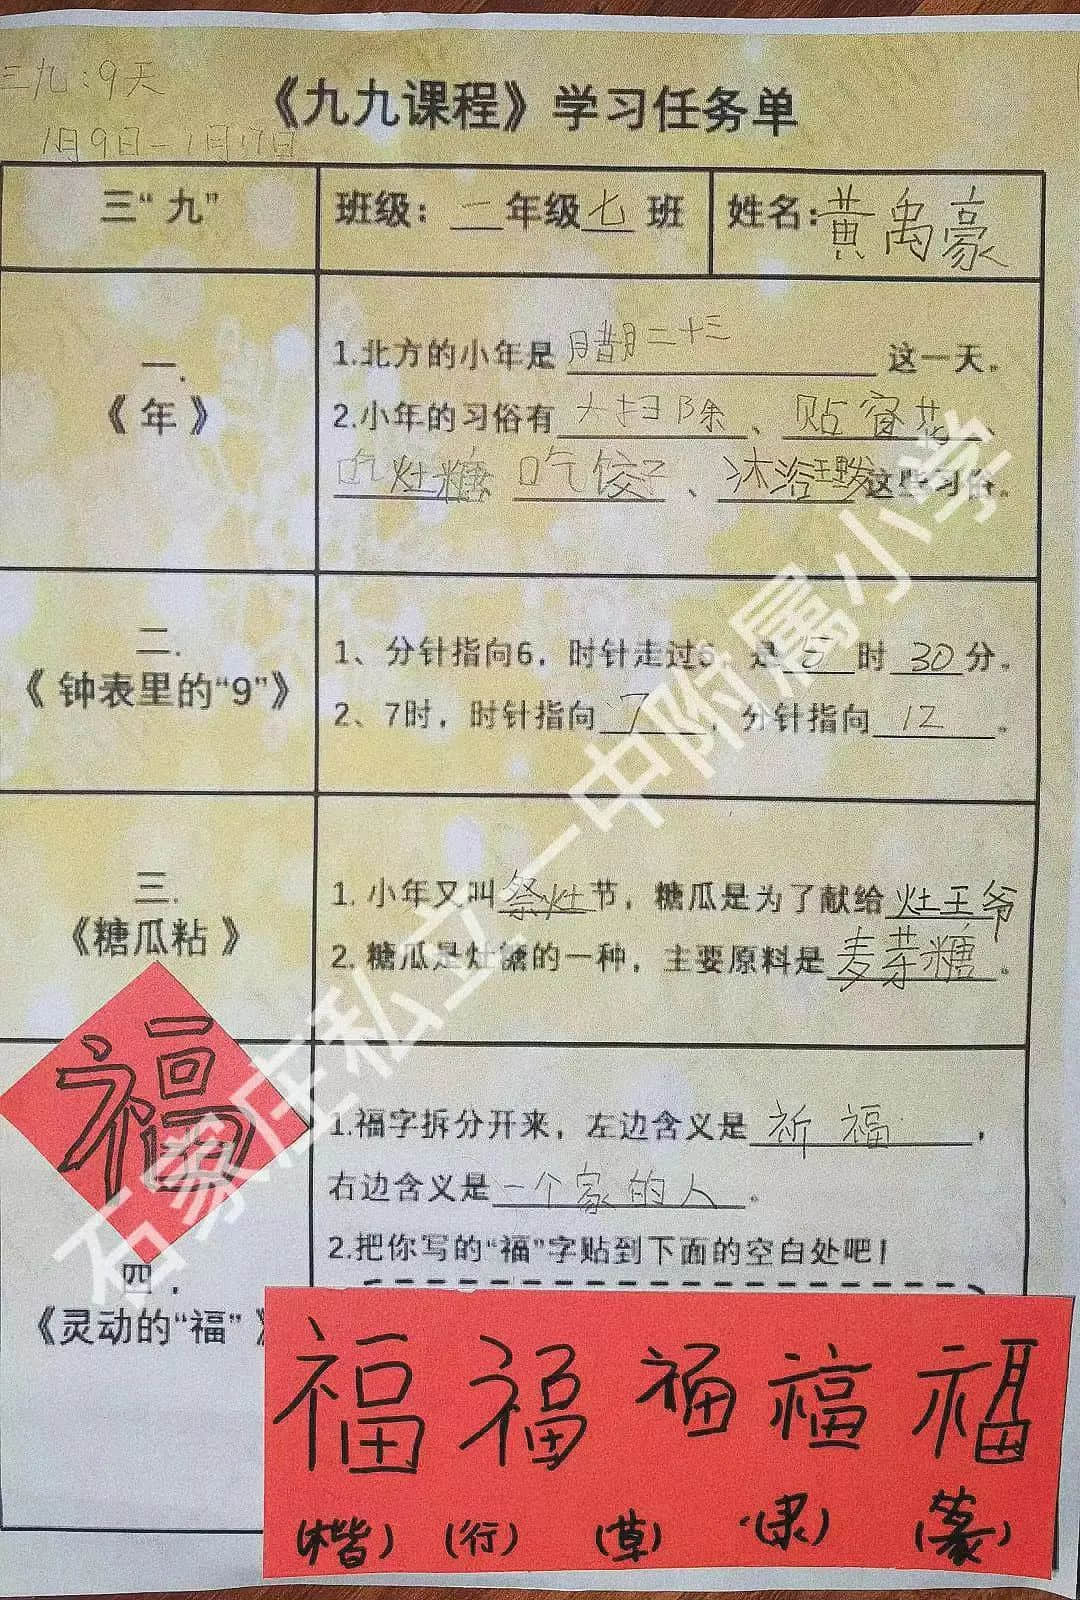 三九:9天
《九九课程》学习任务单
1月9日-1月17日
三“九”
班级:二年级七班
姓名:黄禹豪
一.
《年》
1.北方的小年是腊月二十三这一天。
2.小年的习俗有大扫除、贴窗花、
吃灶糖 吃饺子、沐浴理发这些习俗。
二.
《钟表里的“9”》
1、分针指向6,时针走过6,是 时30分。
2、7时,时针指向7 分针指向12。
三.
《糖瓜粘》
1.小年又叫祭灶节,糖瓜是为了献给灶王爷
2.糖瓜是灶糖的一种,主要原料是麦芽糖。
福
四.
《灵动的“福”》
1.福字拆分开来,左边含义是祈福,
右边含义是一个家的人。
2.把你写的“福”字贴到下面的空白处吧!
福 福 福 福 福
(楷) (行) (草) (隶) (篆)
石家庄私立一中附属小学